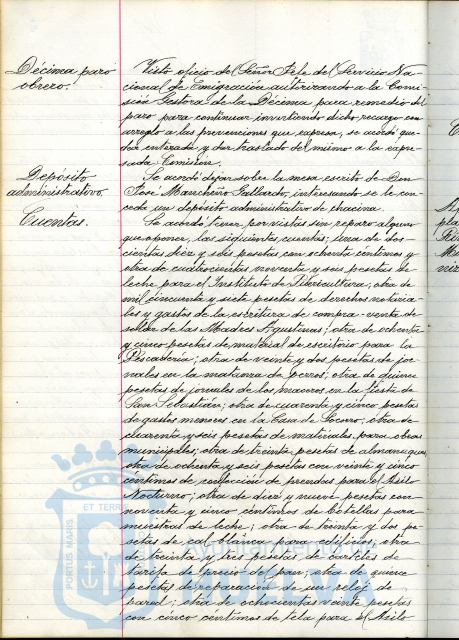 Décima paro
obrero.
Visto oficio del Señor Jefe del Servicio Na-
cional de Emigración autorizando a la Comi-
sión Gestora de la Décima para remedio del
paro para continuar invirtiendo dicho recargo con
arreglo a las prevenciones que expresa, se acordó que-
dar enterado y dar traslado del mismo a la expre-
sada Comisión.
Depósito
administrativo.
Se acordó dejar sobre la mesa escrito de Don
José Mancheño Gallardo, interesando se le con-
ceda un depósito administrativo de chacina.
Cuentas.
Se acordó tener por vistas sin reparo alguno
que oponer, las siguientes cuentas; una de dos-
cientas diez y seis pesetas con ochenta céntimos y
otra de cuatrocientas noventa y seis pesetas de
leche para el Instituto de Puericultura; otra de
mil cincuenta y siete pesetas de derechos notaria-
les y gastos de la escritura de compra-venta de
solar de las Madres Agustinas; otra de ochenta
y cinco pesetas de material de escritorio para la
Pescadería; otra de veinte y dos pesetas de jor-
nales en la matanza de perros; otra de quince
pesetas de jornales de los maceros en la fiesta de
San Sebastián; otra de cuarenta y cinco pesetas
de gastos menores en la Casa de Socorro; otra de
cuarenta y seis pesetas de materiales para obras
municipales; otra de treinta pesetas de almanaques
otra de ochenta y seis pesetas con veinte y cinco
céntimos de confección de prendas para el Asilo
Nocturno; otra de diez y nueve pesetas con
noventa y cinco céntimos de botellas para
muestras de leche; otra de treinta y dos pe-
setas de cal blanca para edificios; otra
de treinta y tres pesetas de carteles de
tarifa de precio de pan; otra de quince
pesetas de reparación de un reloj de
pared; otra de ochocientas veinte pesetas
con cinco céntimos de tela para el Asilo
PORTUS MARIS ET TERR
Ayuntamiento de
HUELVA